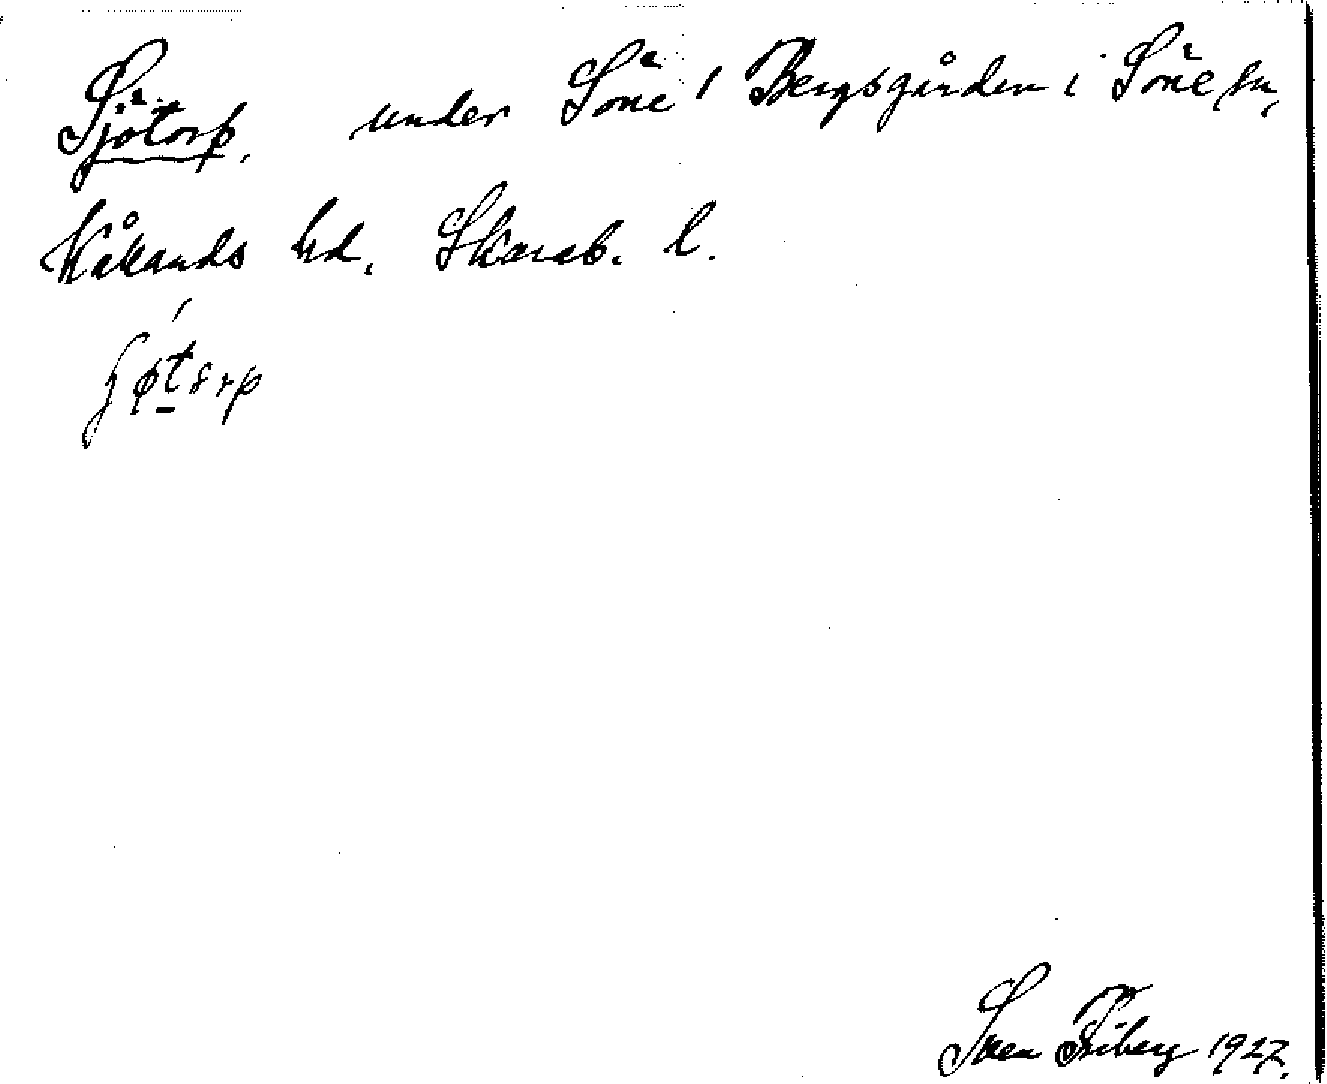 Sjötorp, under Söne 1 Bergsgården i Söne sn,
Kållands hd. Skarab. l.
Sven Friberg 1927.